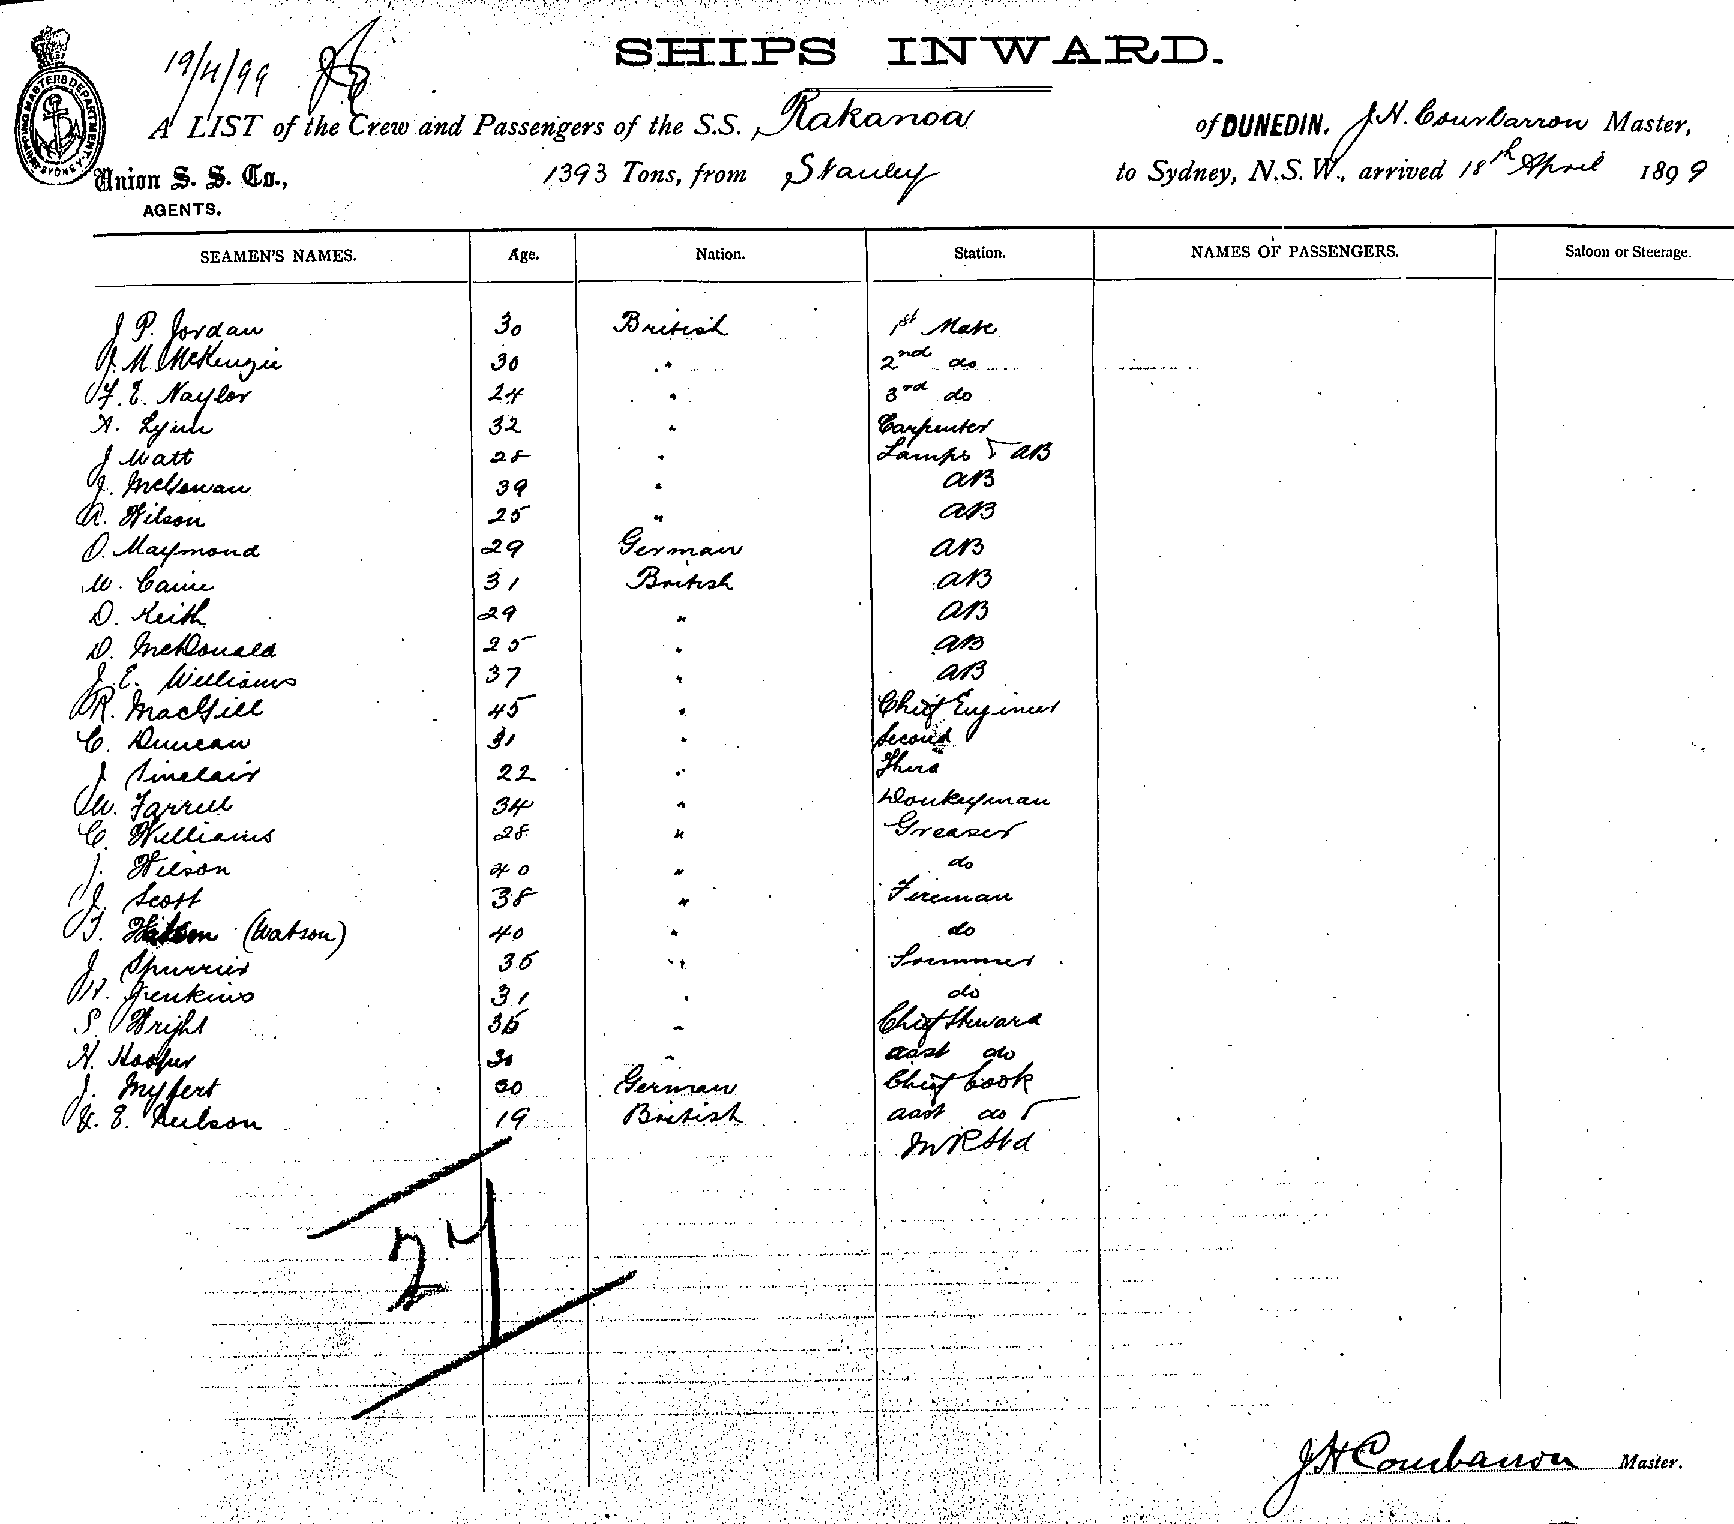 19/4/99
SHIPS INWARD.
SHIPPING MASTERS DEPARTMENT. SYDNEY
A LIST of the Crew and Passengers of the S.S. Rakanoa of DUNEDIN. J.H. Courbarron Master,
Union S. S. Co., 1393 Tons, from Stanley to Sydney, N.S.W., arrived 18th April 1899
AGENTS.
SEAMEN'S NAMES. Age. Nation. Station. NAMES OF PASSENGERS. Saloon or Steerage.
J P. Jordan 30 British 1st Mate
J. M. McKenzie 30 " 2nd do
F. E. Naylor 24 " 3rd do
A. Lynn 32 " Carpenter
J Watt 28 " Lamps & AB
J. McGowan 39 " AB
A. Wilson 25 " AB
O. Maymond 29 German AB
W. Caine 31 British AB
D. Keith 29 " AB
D. McDonald 25 " AB
J. E. Williams 37 " AB
R. MacGill 45 " Chief Engineer
C. Duncan 31 " Second
J Sinclair 22 " Third
W. Farrell 34 " Donkeyman
C. Williams 28 " Greaser
J. Wilson 40 " do
J. Scott 38 " Fireman
T. (Watson) 40 " do
J. Spurrier 36 " Trimmer
H. Jenkins 31 " do
S. Wright 36 " Chief Steward
H. Hooper 30 " asst do
J. Myfert 30 German Chief Cook
E. Neilson 19 British asst do &
M R Std
27
J H Courbarron Master.